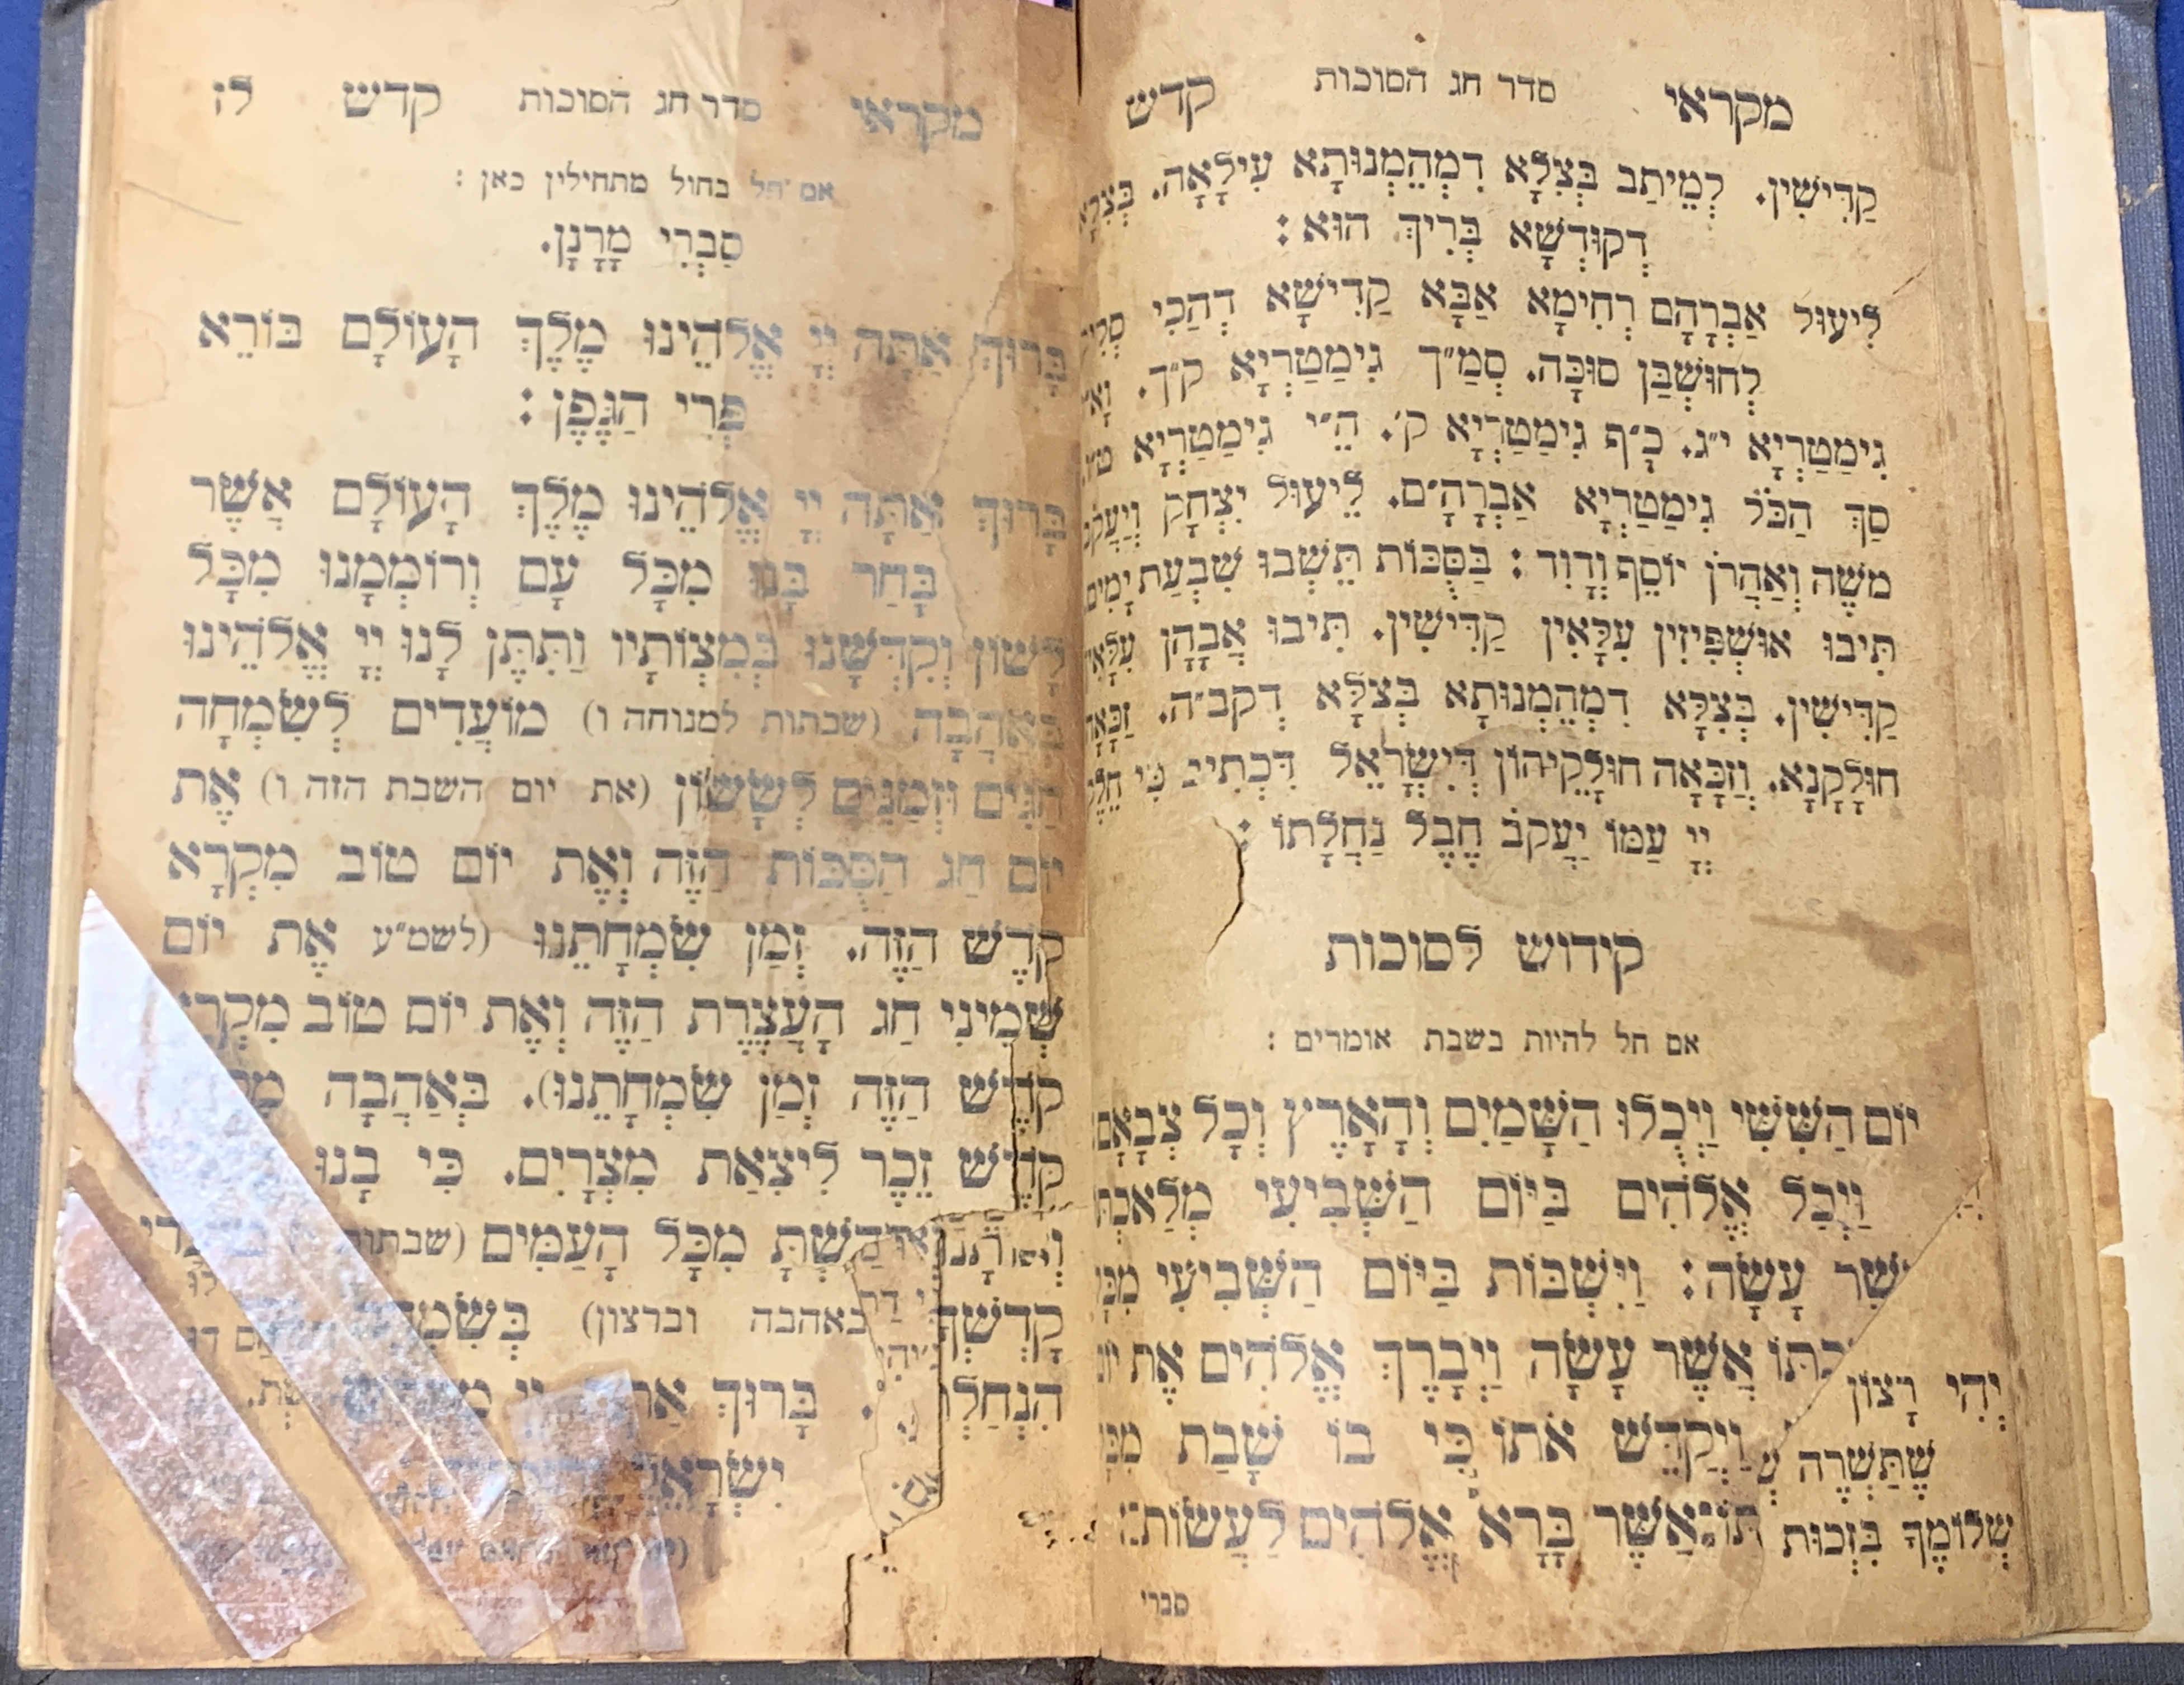 מקראי סדר חג הסוכות קדש
קַדִּישִׁין. לְמֵיתַב בְּצִלָּא דִמְהֵמְנוּתָא עִילָאָה.
דְקוּדְשָׁא בְּרִיךְ הוּא:
לִיעוּל אַבְרָהָם רְחִימָא אַבָּא קַדִישָׁא דְהַכִי
לְחוּשְׁבַּן סוּכָּה. סָמַ״ך גִימַטְרְיָא ק״ך.
גִימַטְרְיָא י״ג. כָ״ף גִימַטְרְיָא ק׳. הֵ״י גִימַטְרְיָא
סַךְ הַכֹּל גִימַטְרְיָא אַבְרָהָ״ם. לֵיעוּל יִצְחָק
מֹשֶׁה וְאַהֲרֹן יוֹסֵף וְדָוִד: בַּסֻּכּוֹת תֵּשְׁבוּ שִׁבְעַת יָמִים
תִּיבוּ אוּשְׁפִּיזִין עִלָּאִין קַדִּישִׁין. תִּיבוּ אֲבָהָן
קַדִּישִׁין. בְּצִלָּא דִמְהֵמְנוּתָא בְּצִלָּא דְקב״ה.
חוּלָקָנָא. וְזַכָּאָה חוּלָקֵיהוֹן דְּיִשְׂרָאֵל דִּכְתִיב כִּי
יְיָ עַמּוֹ יַעֲקֹב חֶבֶל נַחֲלָתוֹ:
קידוש לסוכות
אם חל להיות בשבת אומרים:
יוֹם הַשִּׁשִּׁי וַיְכֻלּוּ הַשָּׁמַיִם וְהָאָרֶץ וְכָל צְבָאָם
וַיְכַל אֱלֹהִים בַּיּוֹם הַשְּׁבִיעִי מְלַאכְתּוֹ
עָשָׂה: וַיִּשְׁבּוֹת בַּיּוֹם הַשְּׁבִיעִי
אֲשֶׁר עָשָׂה וַיְבָרֶךְ אֱלֹהִים אֶת
יְהִי רָצוֹן
וַיְקַדֵּשׁ אֹתוֹ כִּי בוֹ שָׁבַת
שֶׁתַּשְׁרֶה
אֲשֶׁר בָּרָא אֱלֹהִים לַעֲשׂוֹת:
שְׁלוֹמֶךָ בִּזְכוּת
סברי
מקראי סדר חג הסוכות קדש לז
אם חל בחול מתחילין כאן:
סַבְרִי מָרָנָן.
בָּרוּךְ אַתָּה יְיָ אֱלֹהֵינוּ מֶלֶךְ הָעוֹלָם בּוֹרֵא
פְּרִי הַגֶּפֶן:
בָּרוּךְ אַתָּה יְיָ אֱלֹהֵינוּ מֶלֶךְ הָעוֹלָם אֲשֶׁר
בָּחַר בָּנוּ מִכָּל עָם וְרוֹמְמָנוּ מִכָּל
לָשׁוֹן וְקִדְּשָׁנוּ בְּמִצְוֹתָיו וַתִּתֶּן לָנוּ יְיָ אֱלֹהֵינוּ
בְּאַהֲבָה (שבתות למנוחה ו) מוֹעֲדִים לְשִׂמְחָה
חַגִּים וּזְמַנִּים לְשָׂשׂוֹן (את יום השבת הזה ו) אֶת
יוֹם חַג הַסֻּכּוֹת הַזֶּה וְאֶת יוֹם טוֹב מִקְרָא
קֹדֶשׁ הַזֶּה. זְמַן שִׂמְחָתֵנוּ (לשט״ע אֶת יוֹם
שְׁמִינִי חַג הָעֲצֶרֶת הַזֶּה וְאֶת יוֹם טוֹב מִקְרָא
קֹדֶשׁ הַזֶּה זְמַן שִׂמְחָתֵנוּ). בְּאַהֲבָה
קֹדֶשׁ זֵכֶר לִיצִאַת מִצְרָיִם. כִּי בָנוּ
קִדַּשְׁתָּ מִכָּל הָעַמִּים (שבתות
קָדְשֶׁךָ באהבה וברצון)
בָּרוּךְ
יִשְׂרָאֵל